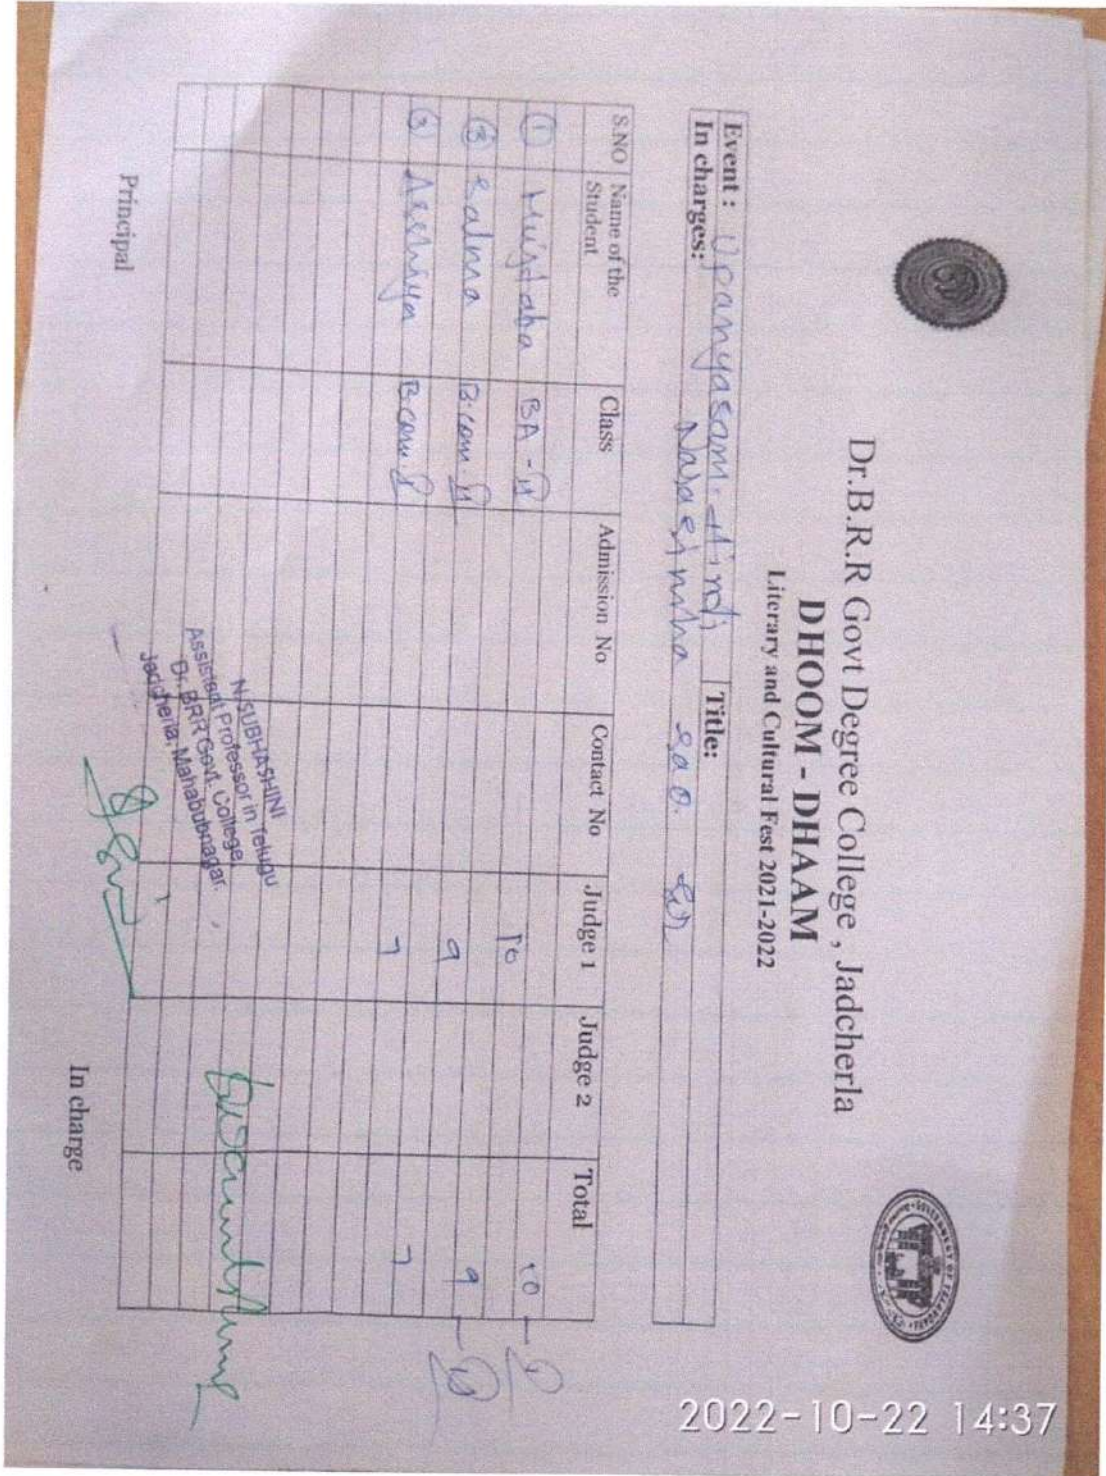 Dr.B.R.R Govt Degree College , Jadcherla
DHOOM - DHAAM
Literary and Cultural Fest 2021-2022
Event : Upanyasam. Hindi Title:
In charges: Narasimha rao. Sir
S.NO Name of the Student Class Admission No Contact No Judge 1 Judge 2 Total
1 BA - II 10 10 - I
3 Salma B.com. II 9 9 - II
3 B.com. I 7 7
N. SUBHASHINI
Assistant Professor in Telugu
Dr. BRR Govt. College,
Jadcherla, Mahabubnagar.
Principal In charge
GOVERNMENT OF TELANGANA
2022-10-22 14:37